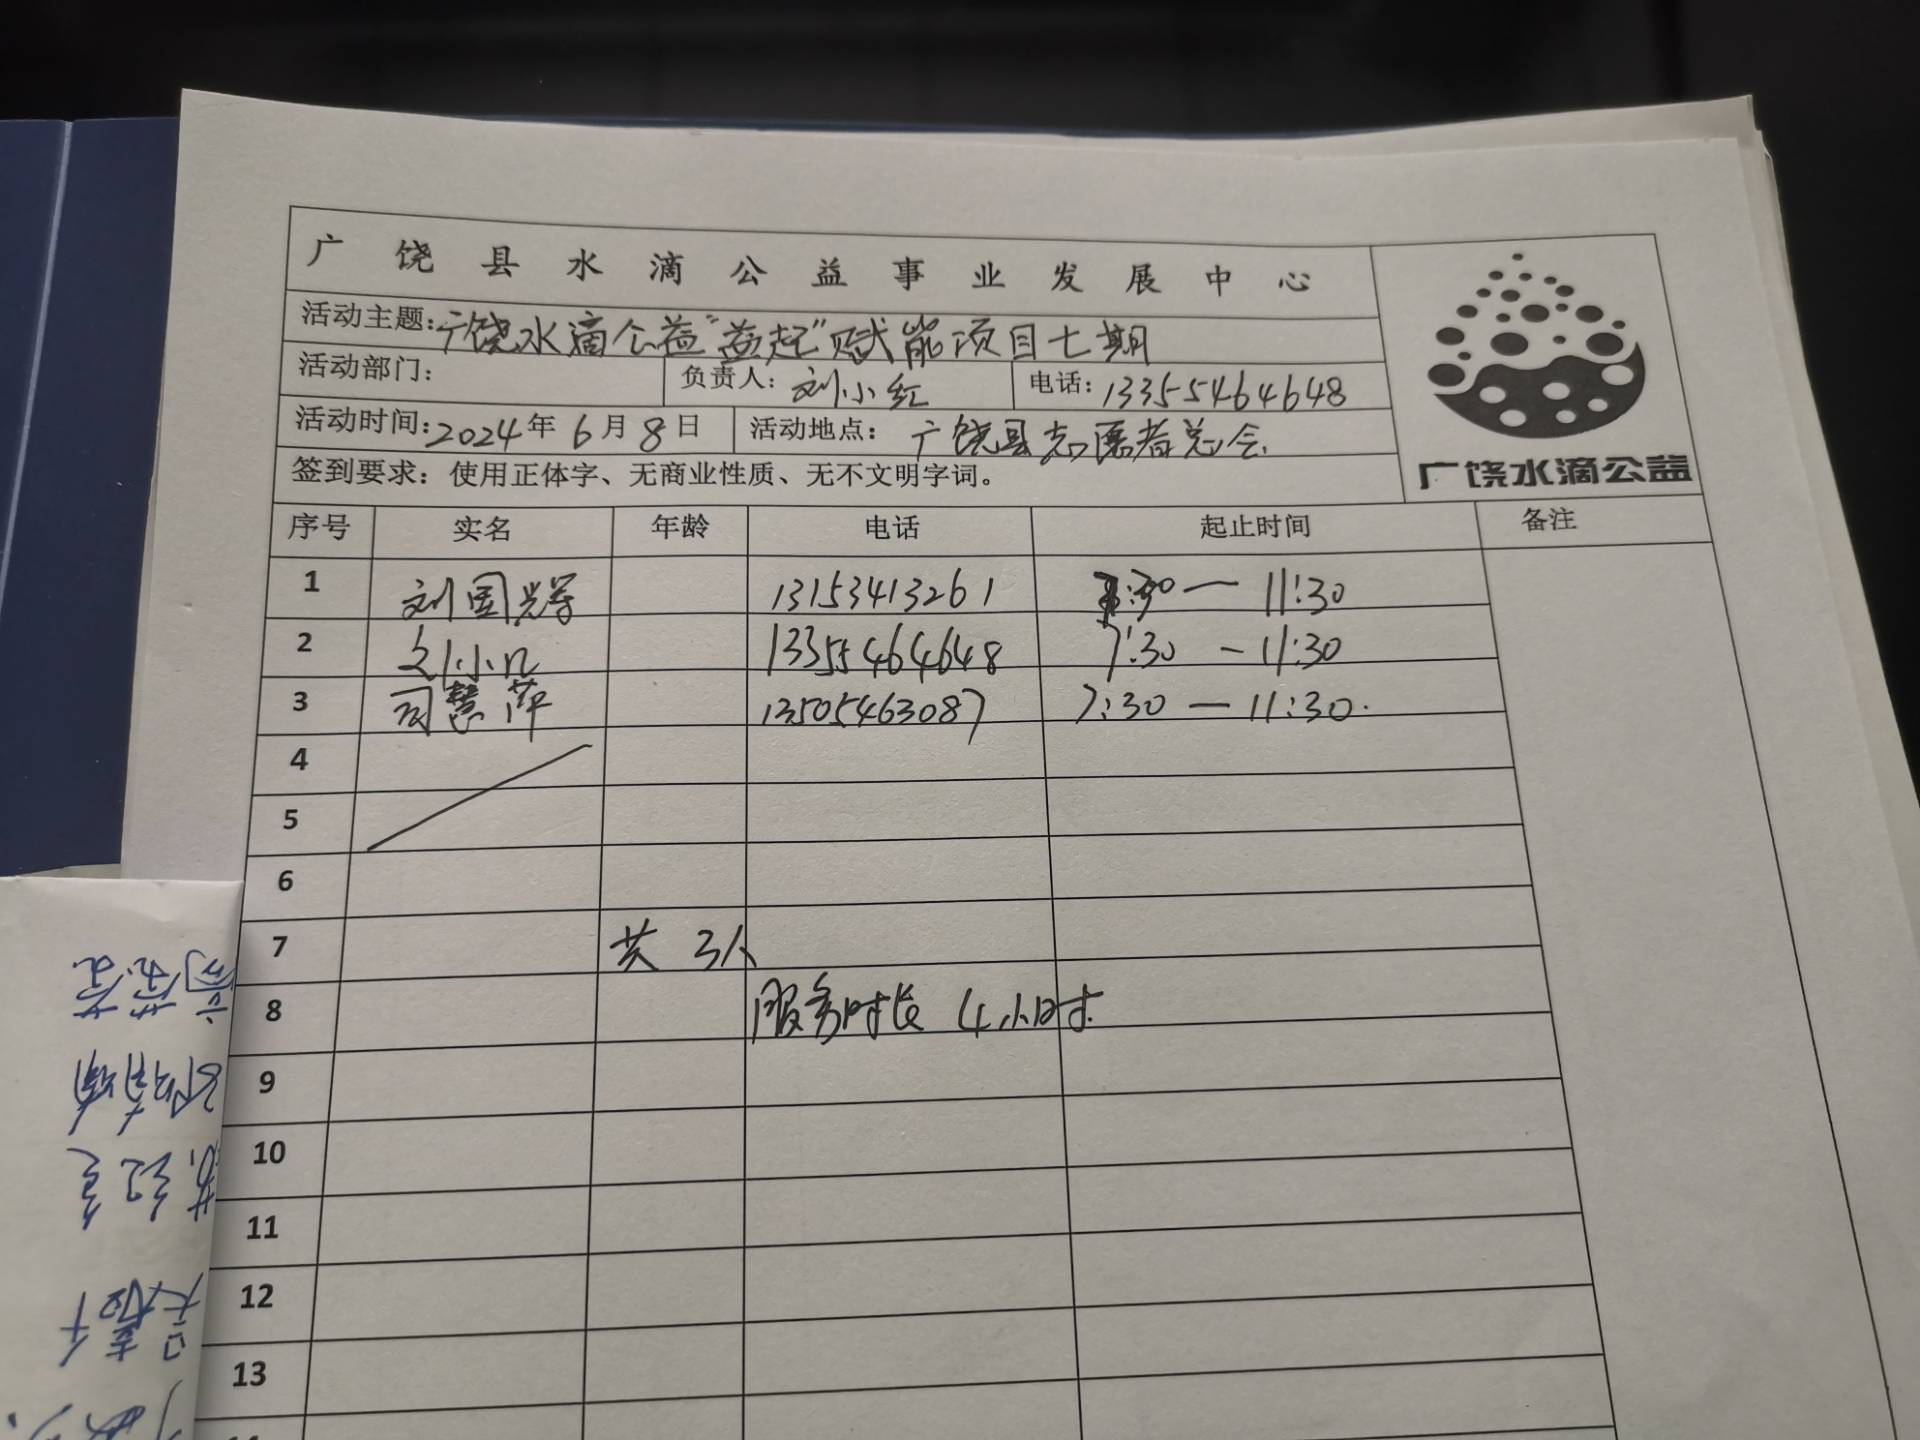 广饶县水滴公益事业发展中心
活动主题:广饶水滴公益"益起"赋能项目七期
活动部门:
负责人: 刘小红
电话: 13355464648
活动时间: 2024年6月8日
活动地点: 广饶县志愿者总会
签到要求: 使用正体字、无商业性质、无不文明字词。
广饶水滴公益
序号 实名 年龄 电话 起止时间 备注
1 刘国辉 13153413261 7:30— 11:30
2 刘小 13355464648 7:30 - 11:30
3 司慧萍 13505463087 7:30 — 11:30.
4
5
6
7 共 3人
8 服务时长 4小时.
9
10
11
12
13